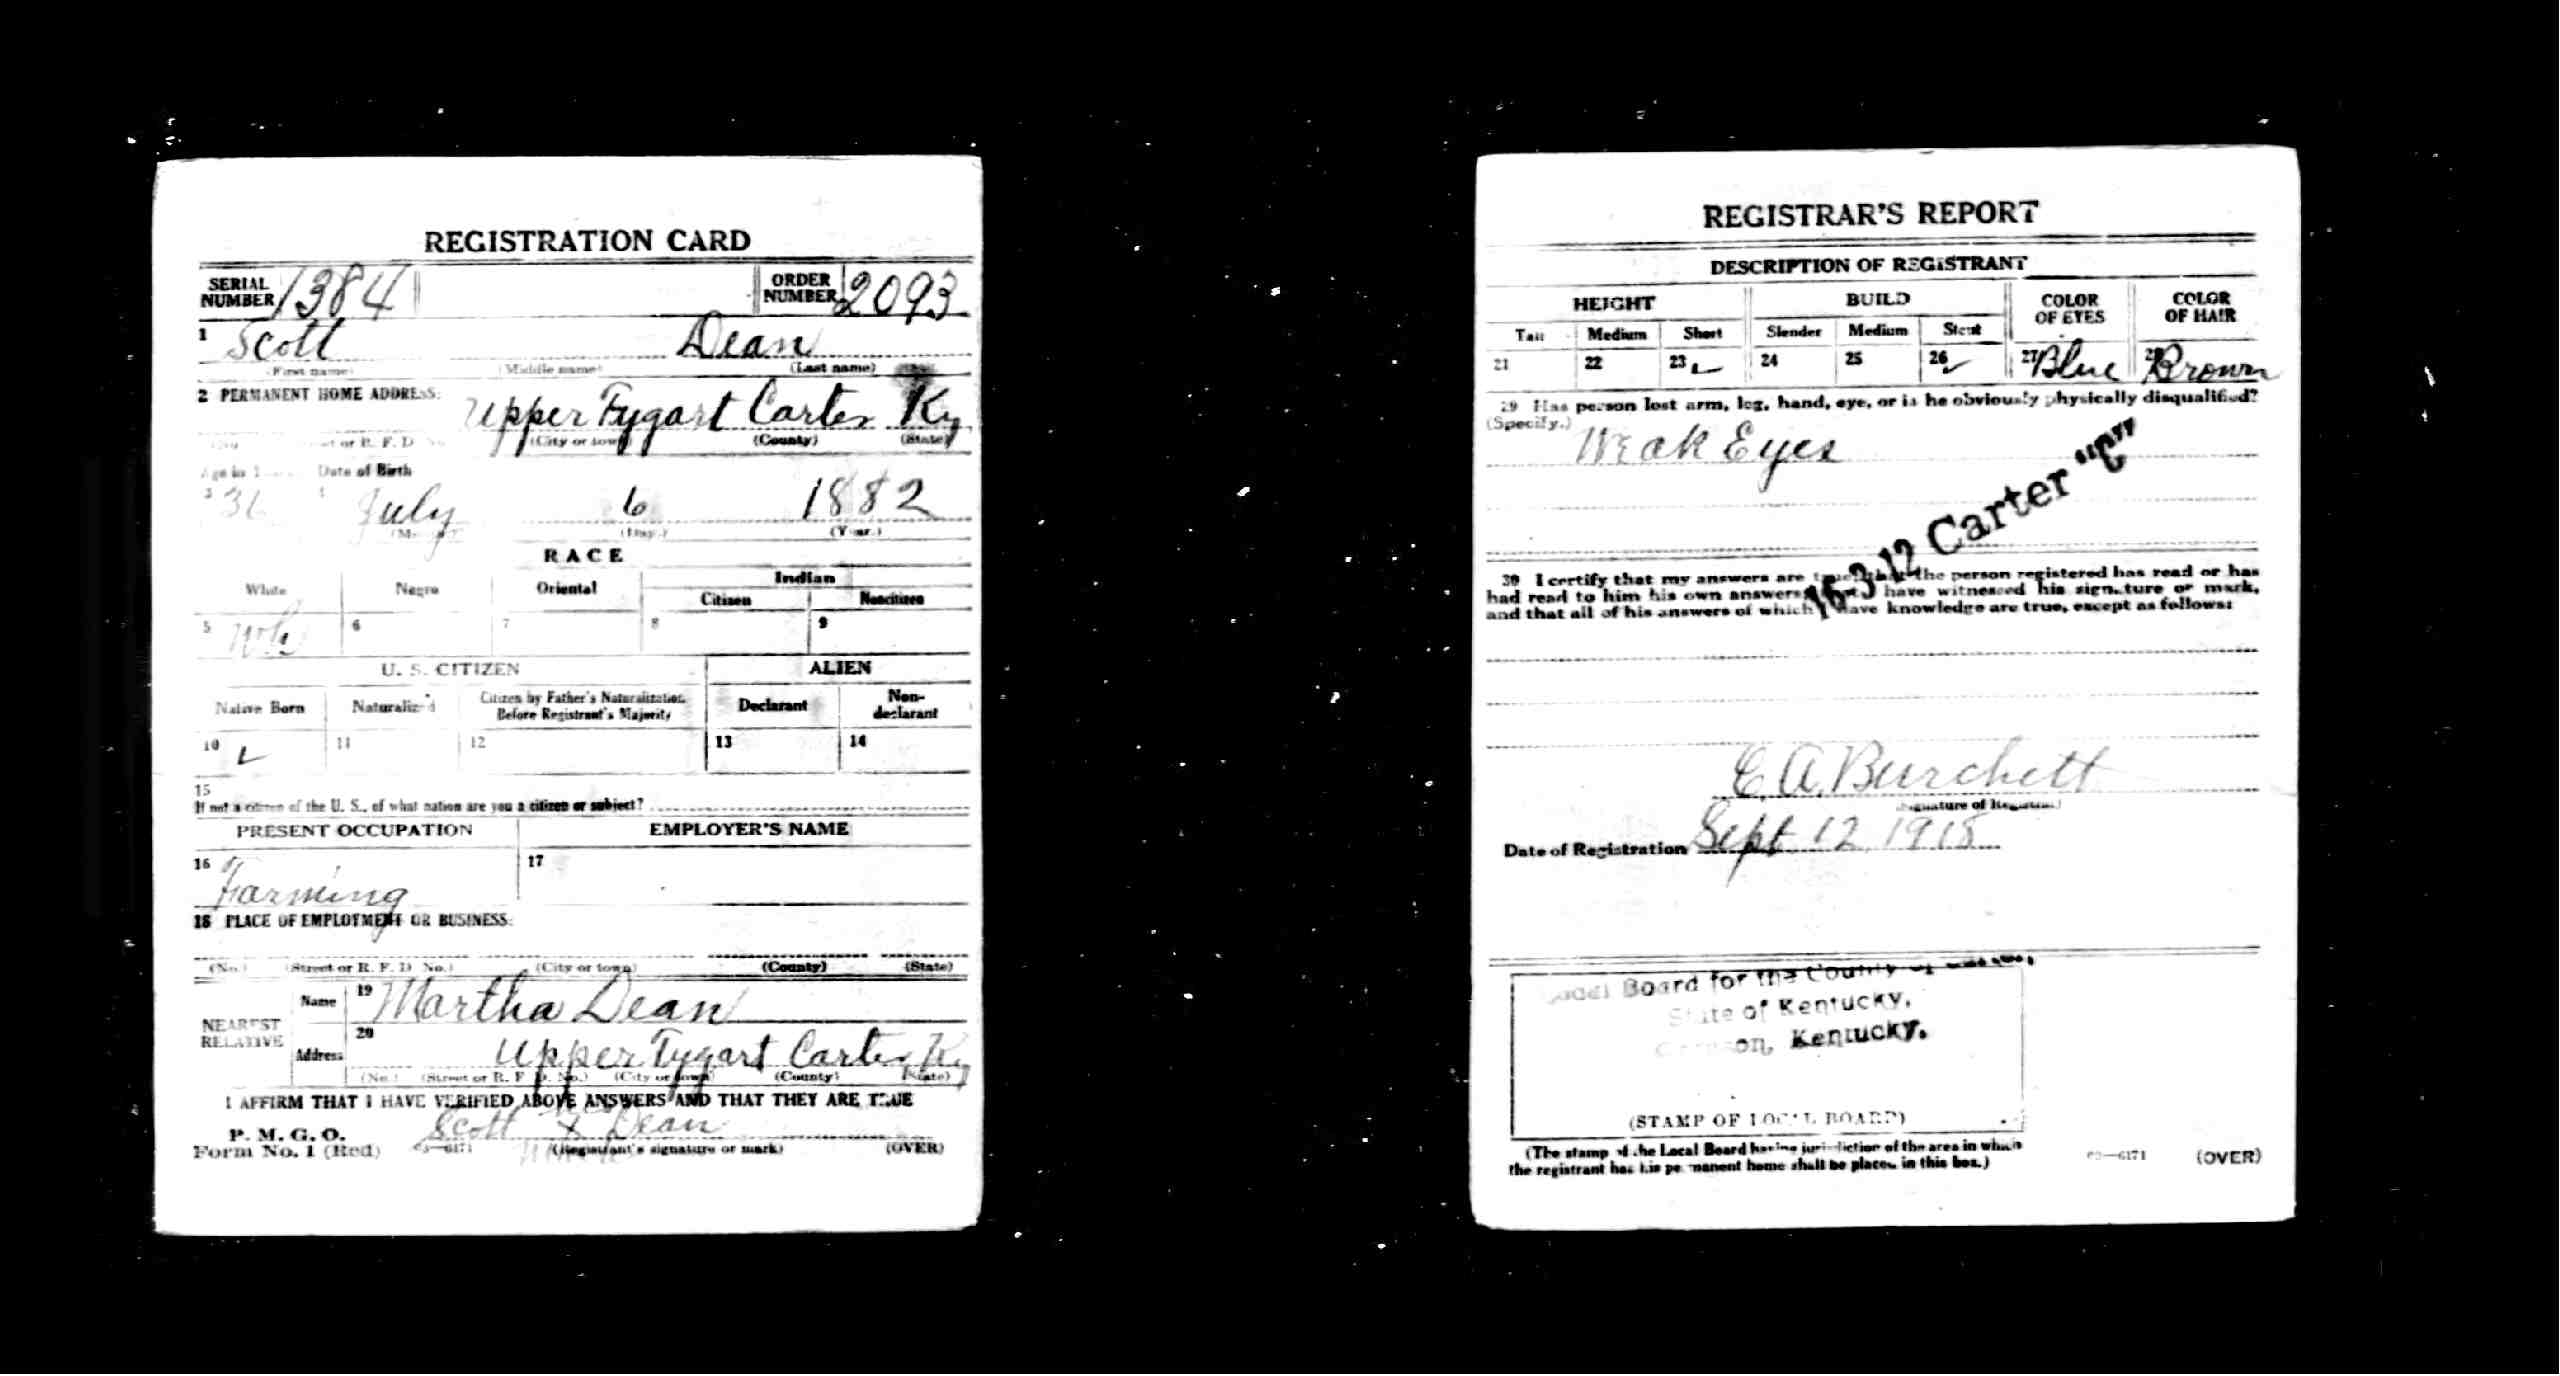 REGISTRATION CARD
SERIAL NUMBER 1384 ORDER NUMBER 2093
1 Scott Dean
(First name) (Middle name) (Last name)
2 PERMANENT HOME ADDRESS:
Upper Tygart Carter Ky
(No.) (Street or R. F. D. No.) (City or town) (County) (State)
Age in Date of Birth
3 36 4 July 6 1882
(Month.) (Day.) (Year.)
RACE
White Negro Oriental Indian
Citizen Noncitizen
5 Wh 6 7 8 9
U. S. CITIZEN ALIEN
Native Born Naturalized Citizen by Father's Naturalization Before Registrant's Majority Declarant Non-declarant
10 ✓ 11 12 13 14
15
If not a citizen of the U. S., of what nation are you a citizen or subject?
PRESENT OCCUPATION EMPLOYER'S NAME
16 Farming 17
18 PLACE OF EMPLOYMENT OR BUSINESS:
(No.) (Street or R. F. D. No.) (City or town) (County) (State)
NEAREST RELATIVE
Name 19 Martha Dean
Address 20 Upper Tygart Carter Ky
(No.) (Street or R. F. D. No.) (City or town) (County) (State)
I AFFIRM THAT I HAVE VERIFIED ABOVE ANSWERS AND THAT THEY ARE TRUE
his
P. M. G. O. Scott X Dean
Form No. 1 (Red) 03—6171 mark (Registrant's signature or mark) (OVER)
REGISTRAR'S REPORT
DESCRIPTION OF REGISTRANT
HEIGHT BUILD COLOR OF EYES COLOR OF HAIR
Tall Medium Short Slender Medium Stout
21 22 23 ✓ 24 25 26 ✓ 27 Blue 28 Brown
29 Has person lost arm, leg, hand, eye, or is he obviously physically disqualified?
(Specify.) Weak Eyes
16-3-12 Carter "C"
30 I certify that my answers are true, that the person registered has read or has
had read to him his own answers, that I have witnessed his signature or mark,
and that all of his answers of which I have knowledge are true, except as follows:
E. A. Burchett
(Signature of Registrar)
Date of Registration Sept 12, 1918
Local Board for the County of Carter,
State of Kentucky,
Grayson, Kentucky.
(STAMP OF LOCAL BOARD)
(The stamp of the Local Board having jurisdiction of the area in which
the registrant has his permanent home shall be placed in this box.)
03—6171 (OVER)